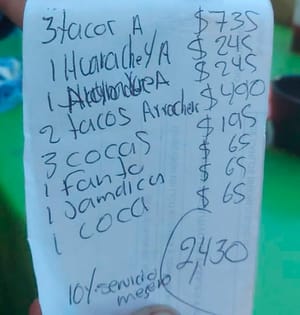 3 tacos A $735
1 Huarache Y A $245
1 A $245
2 tacos Arrachera $490
3 cocas $195
1 fanta $65
1 Jamaica $65
1 coca $65
2,430
10% servicio mesero